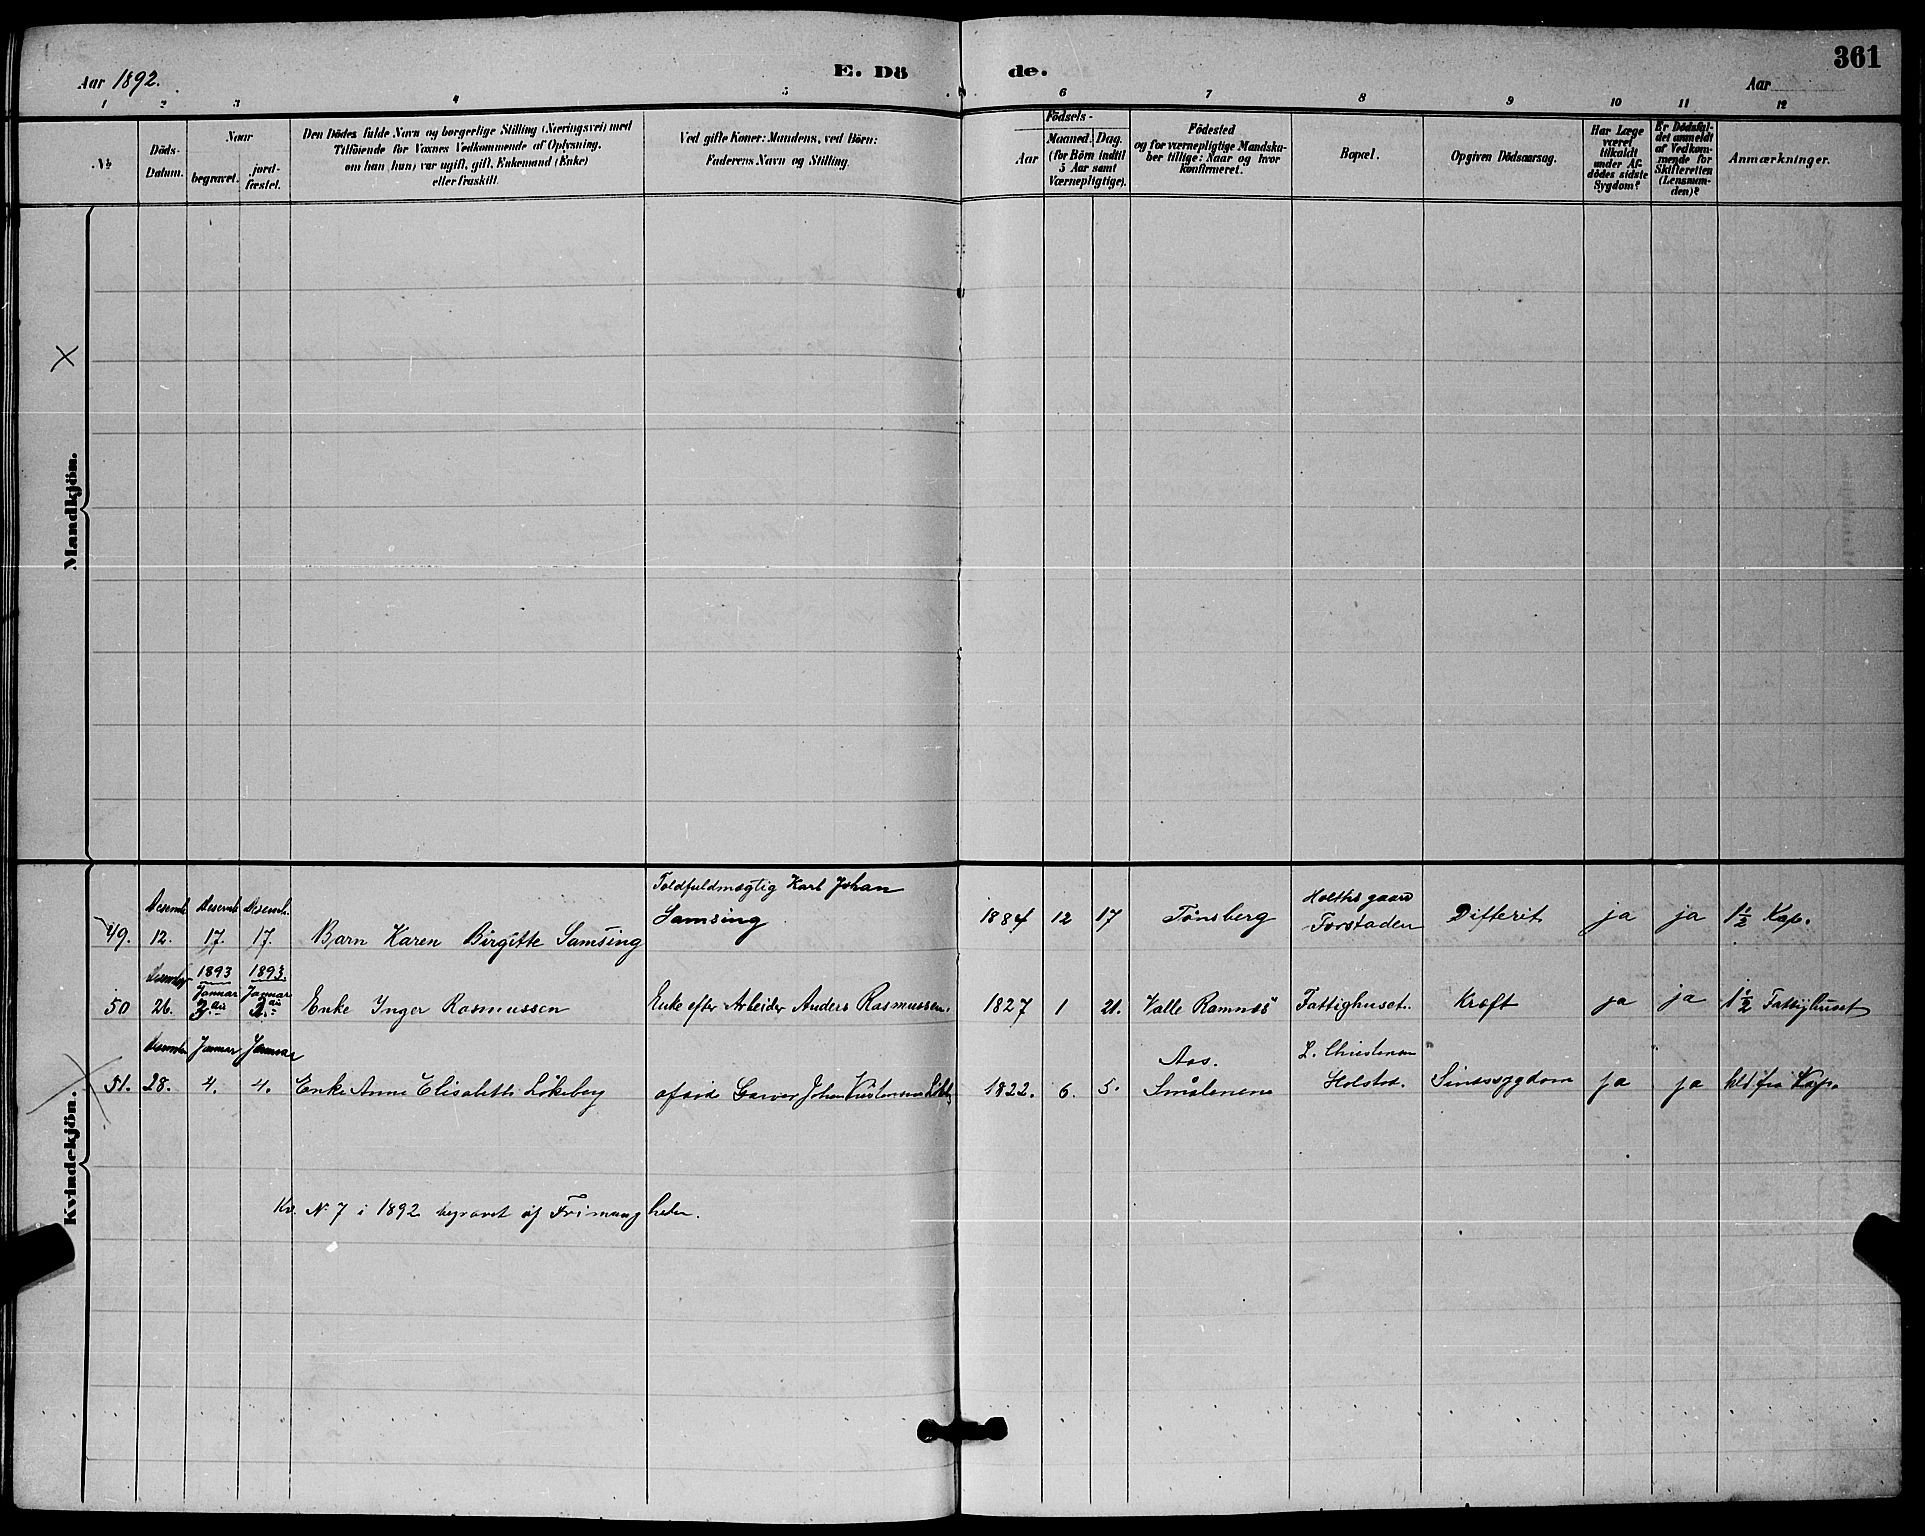 Aar 1892.
E. Dö
de.
Aar
361
1 2 3 4 5 6 7 8 9 10 11 12
№
Döds-
Datum.
Naar
begravet.
jord-
fæstet.
Den Dödes fulde Navn og borgerlige Stilling (Næringsvei) med
Tilföiende for Voxnes Vedkommende af Oplysning,
om han (hun) var ugift, gift, Enkemand (Enke)
eller fraskilt.
Ved gifte Koner: Mandens, ved Börn:
Faderens Navn og Stilling.
Födsels-
Aar
Maaned. Dag.
(for Börn indtil
5 Aar samt
Værnepligtige).
Födested
og for værnepligtige Mandska-
ber tillige: Naar og hvor
konfirmeret.
Bopæl.
Opgiven Dödsaarsag.
Har Læge
været
tilkaldt
under Af-
dödes sidste
Sygdom?
Er Dödsfal-
det anmeldt
af Vedkom-
mende for
Skifteretten
(Lensman-
den)?
Anmærkninger.
Mandkjön.
Kvindekjön.
Desemb Desemb Desemb. Toldfuldmægtig Karl Johan
49. 12. 17. 17. Barn Karen Birgitte Samsing Samsing 1884 12 17 Tönsberg Holthsgaard Forstaden Differit ja ja 1½ Kap.
Desember 1893 Januar 1893. Januar
50 26. 2den 2den Enke Inger Rasmussen Enke efter Arbeider Anders Rasmussen. 1827 1 21. Valle Ramnæs Fattighuset. Kræft ja ja 1½ Fattighuset
Desember Januar Januar Aas. L. Christensen
51. 28. 4. 4. Enke Anne Elisabeth Lökeberg afdöde Garver Johan 1822. 6. 5. Smålenene Holstad. Sindssygdom ja ja fra Kap.
Kv. N. 7 i 1892 begravet af Frimenigheden.